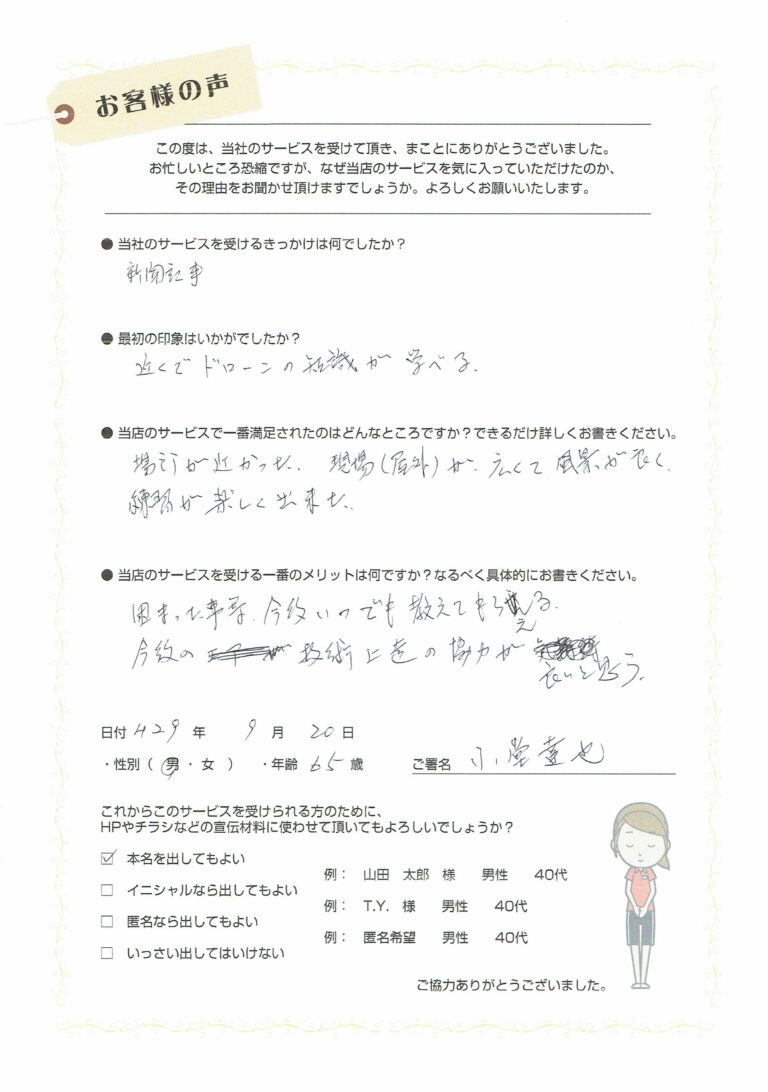 お客様の声
この度は、当社のサービスを受けて頂き、まことにありがとうございました。
お忙しいところ恐縮ですが、なぜ当店のサービスを気に入っていただけたのか、
その理由をお聞かせ頂けますでしょうか。よろしくお願いいたします。
● 当社のサービスを受けるきっかけは何でしたか？
新聞記事
● 最初の印象はいかがでしたか？
近くでドローンの知識が学べる.
● 当店のサービスで一番満足されたのはどんなところですか？できるだけ詳しくお書きください。
場所が近かった. 現場(屋外)が、広くて風景が良く.
練習が楽しく出来た.
● 当店のサービスを受ける一番のメリットは何ですか？なるべく具体的にお書きください。
困まった事等、今後いつでも教えてもらえる.
今後の 技術 の協力が
良いと思う.
日付 H29 年 9 月 20 日
・性別（ 男 ・ 女 ） ・年齢 65 歳 ご署名 小堂
これからこのサービスを受けられる方のために、
HPやチラシなどの宣伝材料に使わせて頂いてもよろしいでしょうか？
☑ 本名を出してもよい 例： 山田 太郎 様 男性 40代
□ イニシャルなら出してもよい 例： T.Y. 様 男性 40代
□ 匿名なら出してもよい 例： 匿名希望 男性 40代
□ いっさい出してはいけない
ご協力ありがとうございました。